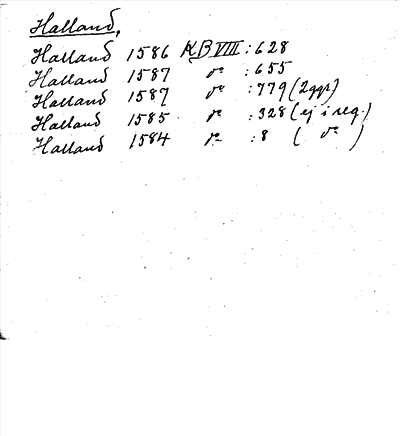 Halland,
Halland 1586 KB VIII : 628
Halland 1587 do : 655
Halland 1587 do : 779 (2ggr)
Halland 1585 do : 328 (ej i reg.)
Halland 1584 do : 8 ( do )